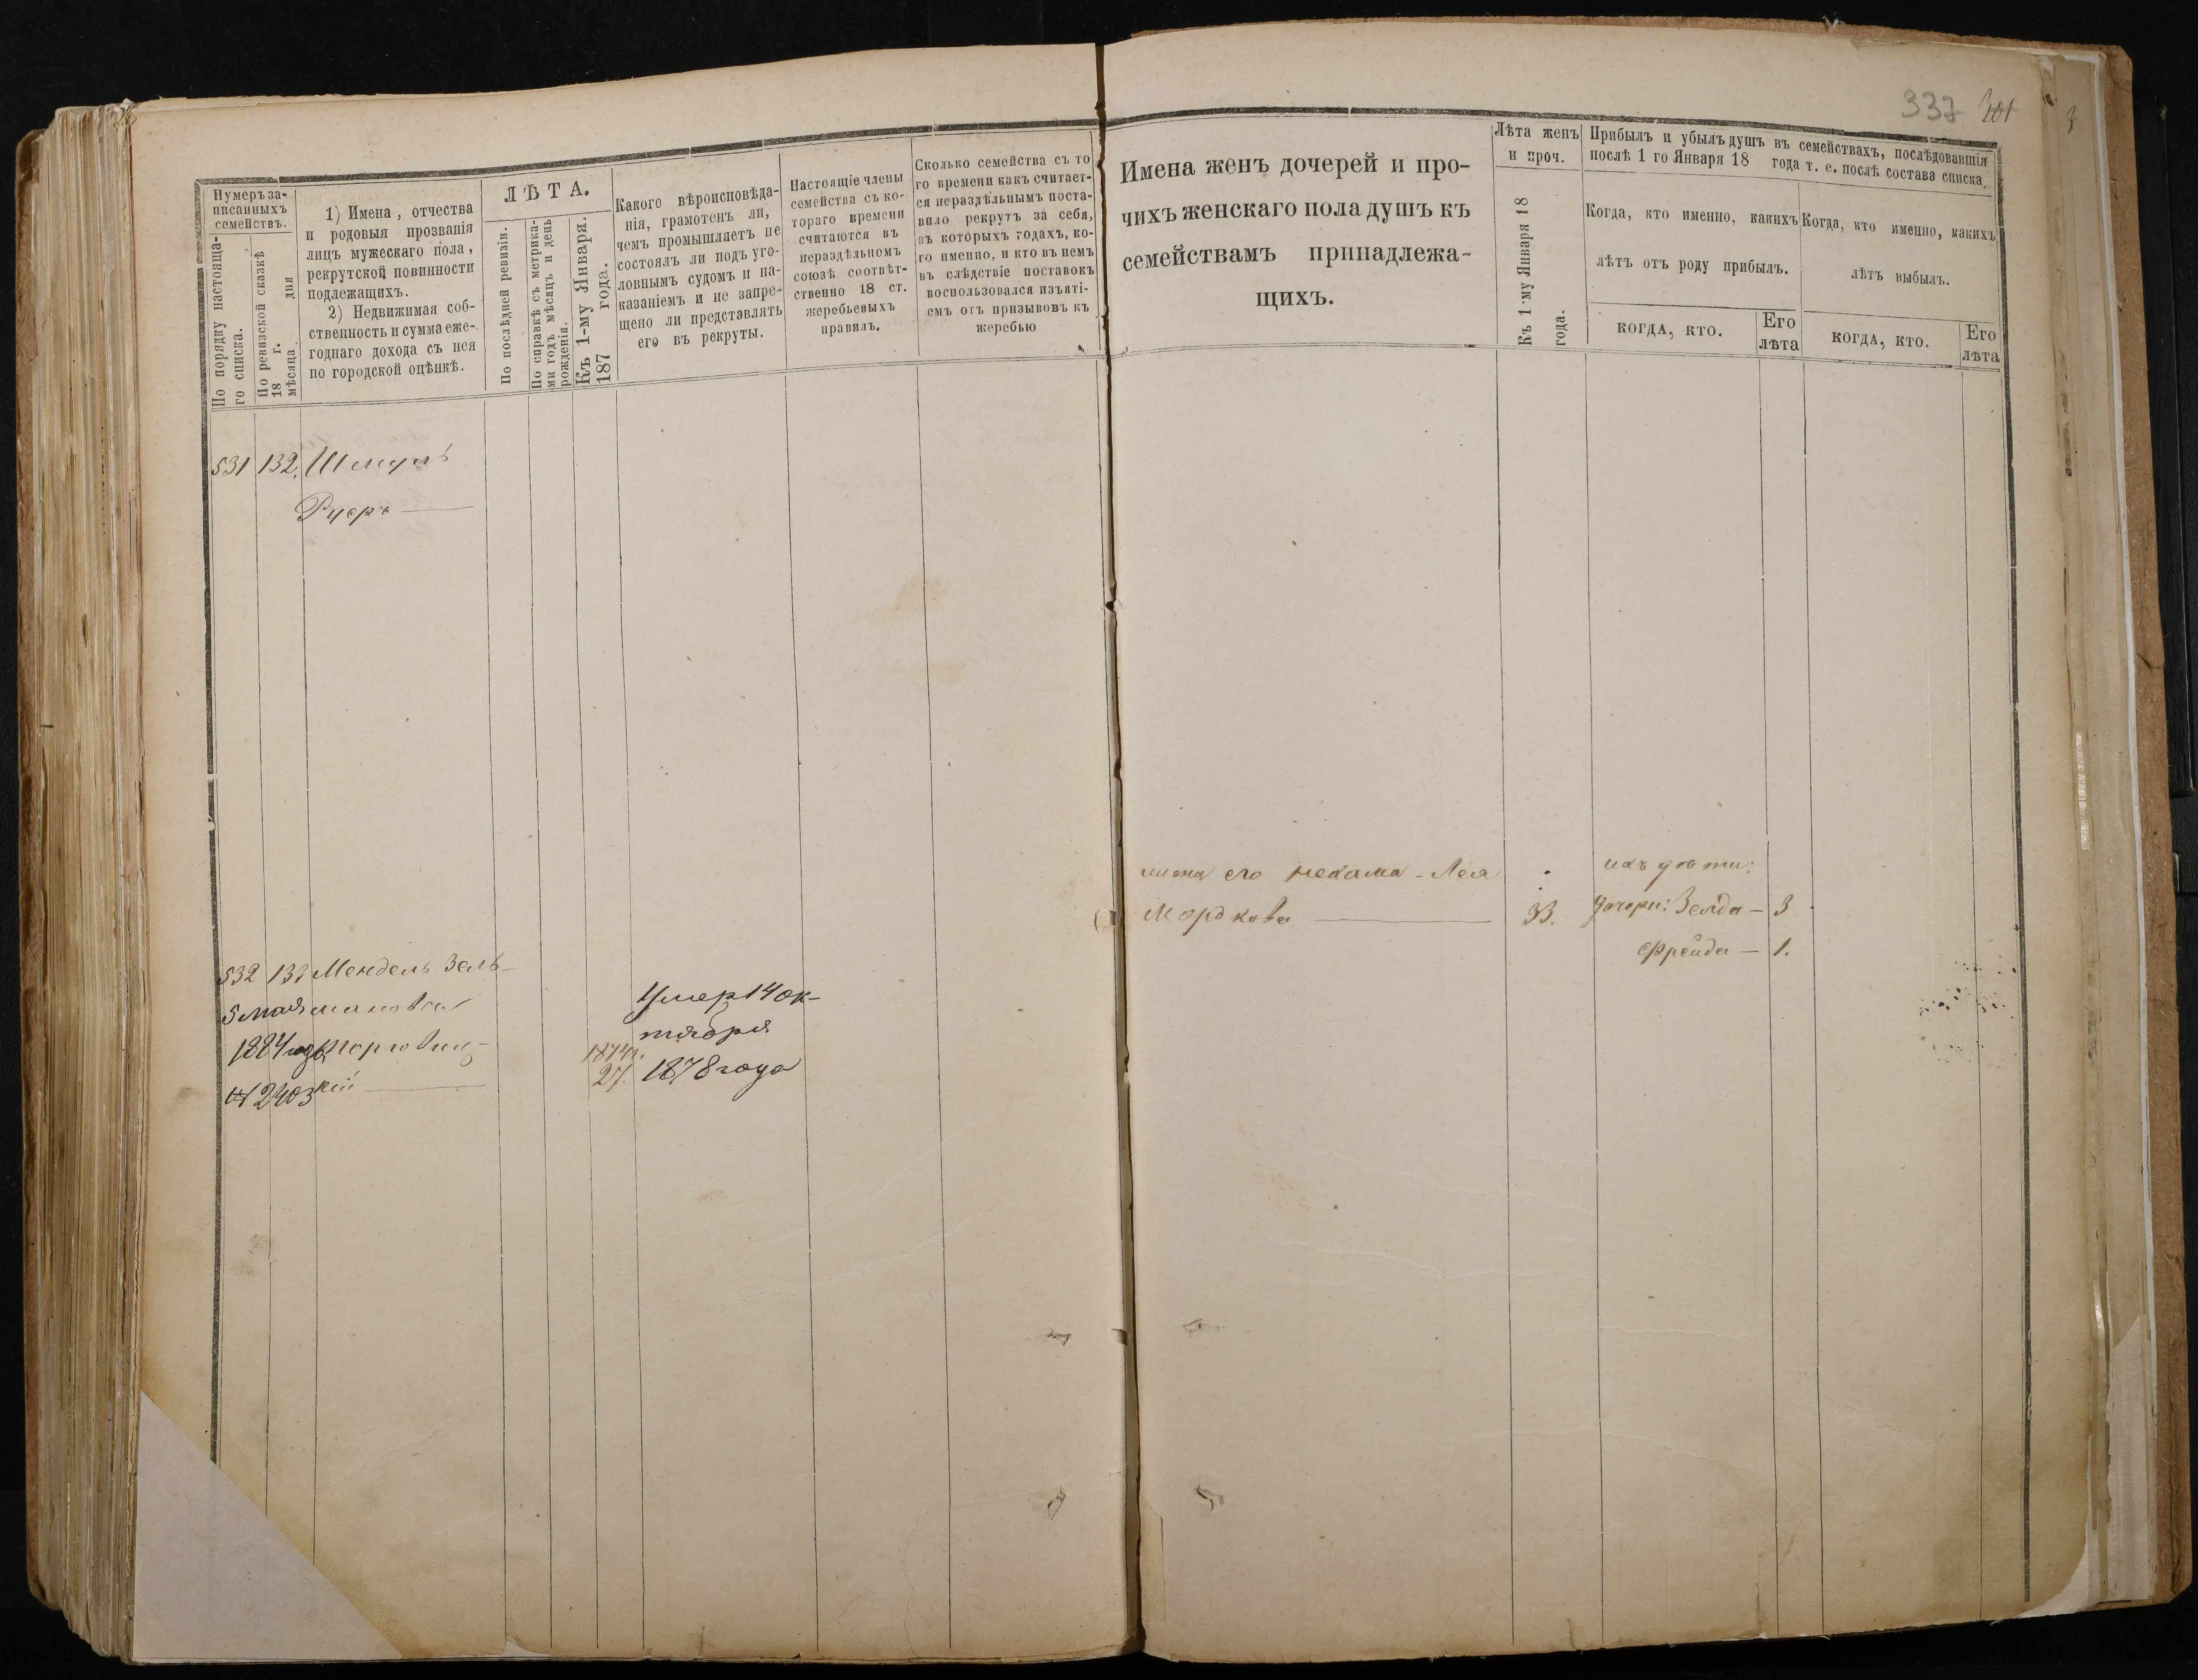 337 301
Нумеръ за-
писанныхъ
семействъ.
По порядку настояща-
го списка.
По ревизской сказкѣ
18 г. дня
мѣсяца
1) Имена, отчества
и родовыя прозванія
лицъ мужескаго пола,
рекрутской повинности
подлежащихъ.
2) Недвижимая соб-
ственность и сумма еже-
годнаго дохода съ нея
по городской оцѣнкѣ.
ЛѢТА.
По послѣдней ревизіи.
По справкѣ съ метрика-
ми годъ мѣсяцъ и день
рожденія.
Къ 1-му Января.
187 года.
Какого вѣроисповѣда-
нія, грамотенъ ли,
чемъ промышляетъ не
состоялъ ли подъ уго-
ловнымъ судомъ и на-
казаніемъ и не запре-
щено ли представлять
его въ рекруты.
Настоящіе члены
семейства съ ко-
тораго времени
считаются въ
нераздѣльномъ
союзѣ соотвѣт-
ственно 18 ст.
жеребьевыхъ
правилъ.
Сколько семейства съ то
го времени какъ считает-
ся нераздѣльнымъ поста-
вило рекрутъ за себя,
въ которыхъ годахъ, ко-
го именно, и кто въ немъ
въ слѣдствіе поставокъ
воспользовался изъяті-
емъ отъ призывовъ къ
жеребью
531 132. Шмуль
532 133 Мендель Зель-
5 мая мановъ
1884 год Торговиц-
№ 2403 кій
1874 г.
27.
Умер 14 ок-
тября
1878 года
Имена женъ дочерей и про-
чихъ женскаго пола душъ къ
семействамъ принадлежа-
щихъ.
Лѣта женъ
и проч.
Къ 1-му Января 18
года.
Прибылъ и убылъ душъ въ семействахъ, послѣдовавшія
послѣ 1 го Января 18 года т. е. послѣ состава списка.
Когда, кто именно, какихъ
лѣтъ отъ роду прибылъ.
КОГДА, КТО.
Его
лѣта
Когда, кто именно, какихъ
лѣтъ выбылъ.
КОГДА, КТО.
Его
лѣта
жена его Нехама-Лея
Мордкова 33.
ихъ дѣти:
дочери: Зелда — 3
Фрейда — 1.